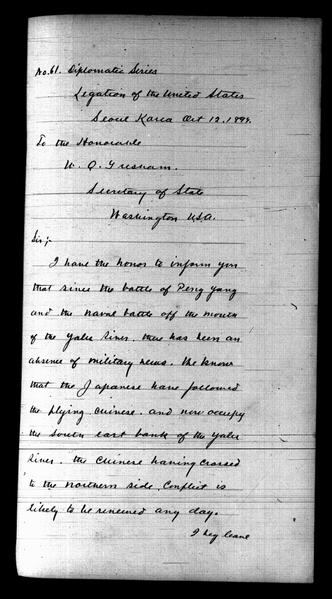 No. 61. Diplomatic Series
Legation of the United States
Seoul Korea Oct 12. 1894.
To the Honorable
W. Q. Gresham.
Secretary of State
Washington U.S.A.
Sir;-
I have the honor to inform you
that since the battle of Peng Yang
and the naval battle off the mouth
of the Yalu River, there has been an
absence of military news. We know
that the Japanese have followed
the flying Chinese. and now occupy
the south east bank of the Yalu
River. the Chinese having crossed
to the northern side. Conflict is
likely to be renewed any day.
I beg leave